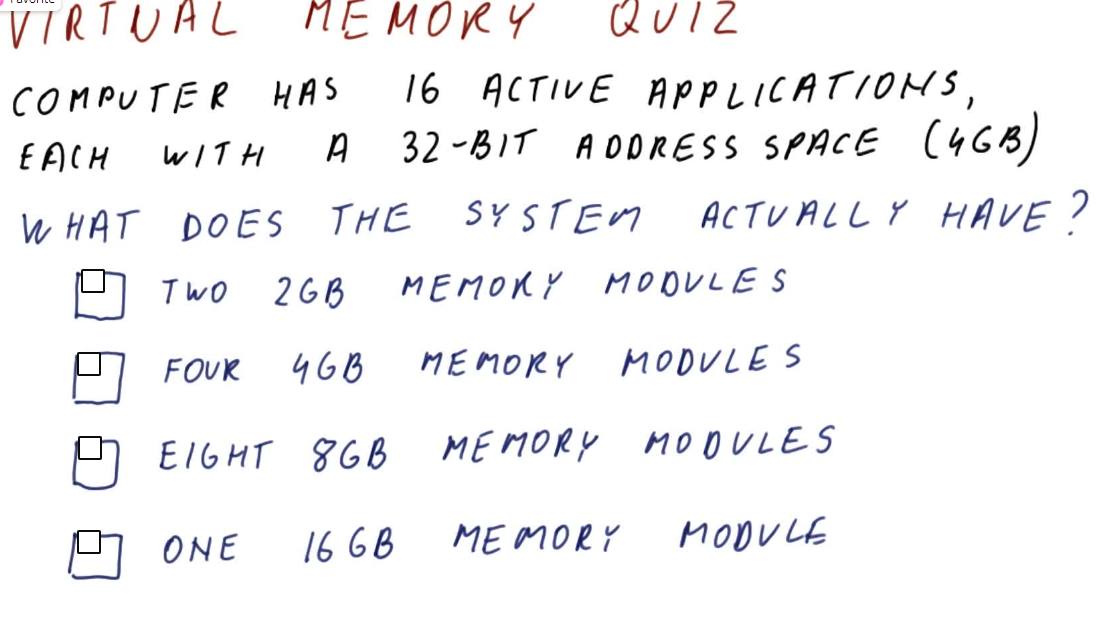 Favorite
VIRTUAL MEMORY QUIZ
COMPUTER HAS 16 ACTIVE APPLICATIONS,
EACH WITH A 32-BIT ADDRESS SPACE (4GB)
WHAT DOES THE SYSTEM ACTUALLY HAVE?
TWO 2GB MEMORY MODULES
FOUR 4GB MEMORY MODULES
EIGHT 8GB MEMORY MODULES
ONE 16GB MEMORY MODULE